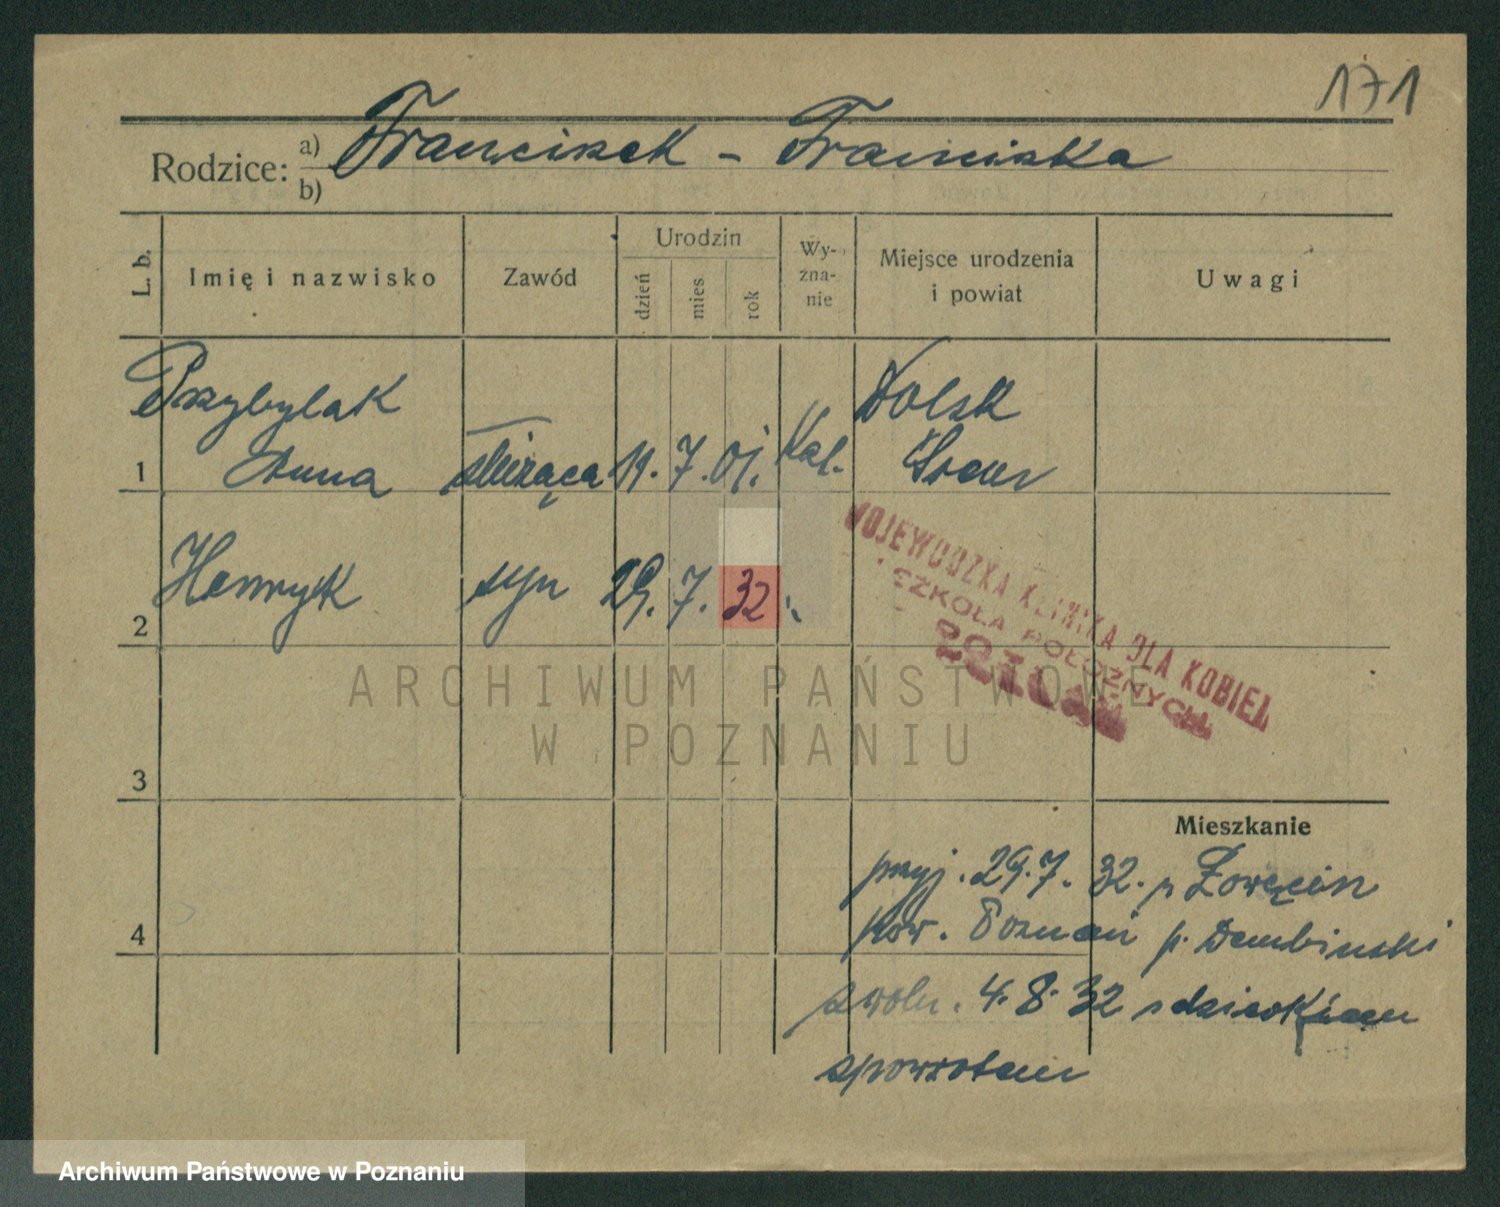 171
Rodzice: a) Franciszek - Franciszka
b)
L. b. Imię i nazwisko Zawód Urodzin dzień mies rok Wy-zna-nie Miejsce urodzenia i powiat Uwagi
Przybylak Dolsk
1 Anna służąca 19. 7. 01. Kat. Śrem
2 Henryk syn 29. 7. 32 "
WOJEWÓDZKA KLINIKA DLA KOBIET
I SZKOŁA POŁOŻNYCH
POZNAŃ
ARCHIWUM PAŃSTWOWE
W POZNANIU
3
Mieszkanie
przyj. 29.7. 32. z Żowęcin
4 pow. Poznań p. Dembinski
zwoln. 4.8.32 z dzieckiem
spowrotem
Archiwum Państwowe w Poznaniu